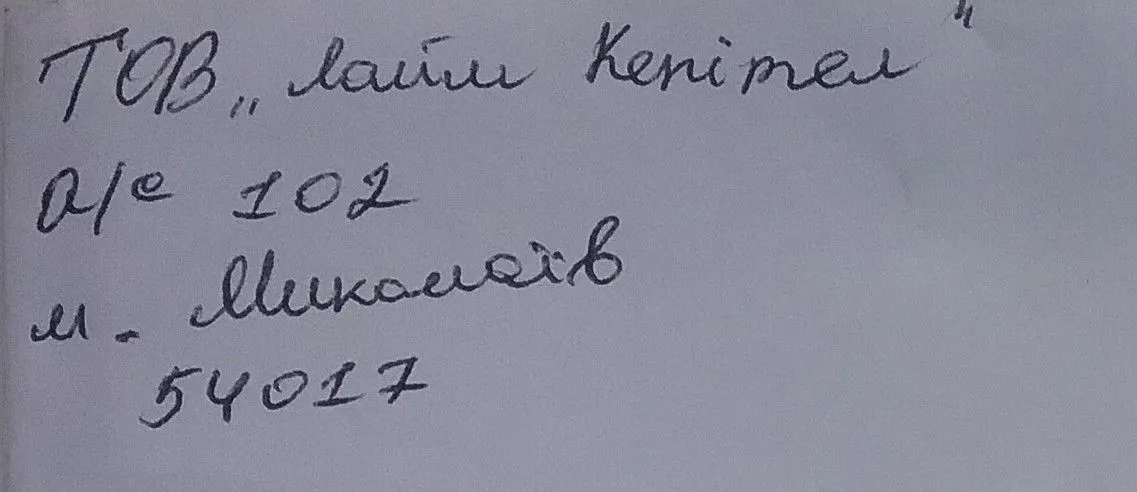 ТОВ „Лайм Кепітел"
а/с 102
м. Миколаїв
54017